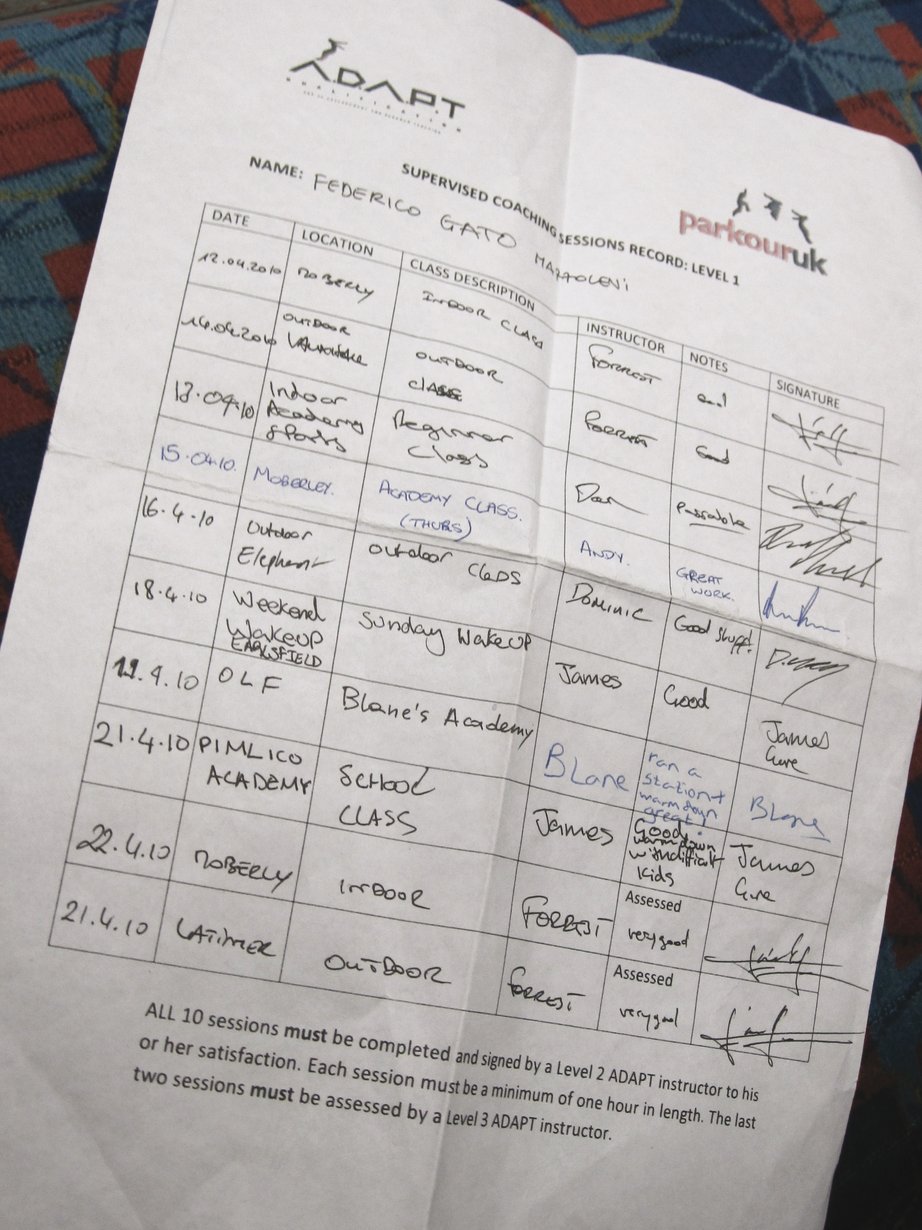 A.D.A.P.T
QUALIFICATION
parkouruk
SUPERVISED COACHING SESSIONS RECORD: LEVEL 1
NAME: FEDERICO GATO MAZZOLENI
DATE LOCATION CLASS DESCRIPTION INSTRUCTOR NOTES SIGNATURE
12.04.2010 MOBERLY INDOOR CLASS FORREST
14.04.2010 OUTDOOR OUTDOOR FORREST Good
CLASS
13.04.10 Indoor Beginner Dan Passable
Academy Class
Sports
15.04.10. MOBERLEY. ACADEMY CLASS. ANDY. GREAT
(THURS) WORK.
16.4.10 Outdoor outdoor class DOMINIC Good stuff!
Elephant
18.4.10 Weekend Sunday Wakeup James Good James
Wakeup
EARLSFIELD
19.4.10 OLF Blane's Academy BLane ran a Blane
station +
warmdown
great!
21.4.10 PIMLICO SCHOOL James Good James
ACADEMY CLASS warmdown
with difficult
kids
22.4.10 MOBERLY INDOOR FORREST Assessed
very good
21.4.10 LATIMER OUTDOOR FORREST Assessed
very good
ALL 10 sessions must be completed and signed by a Level 2 ADAPT instructor to his
or her satisfaction. Each session must be a minimum of one hour in length. The last
two sessions must be assessed by a Level 3 ADAPT instructor.